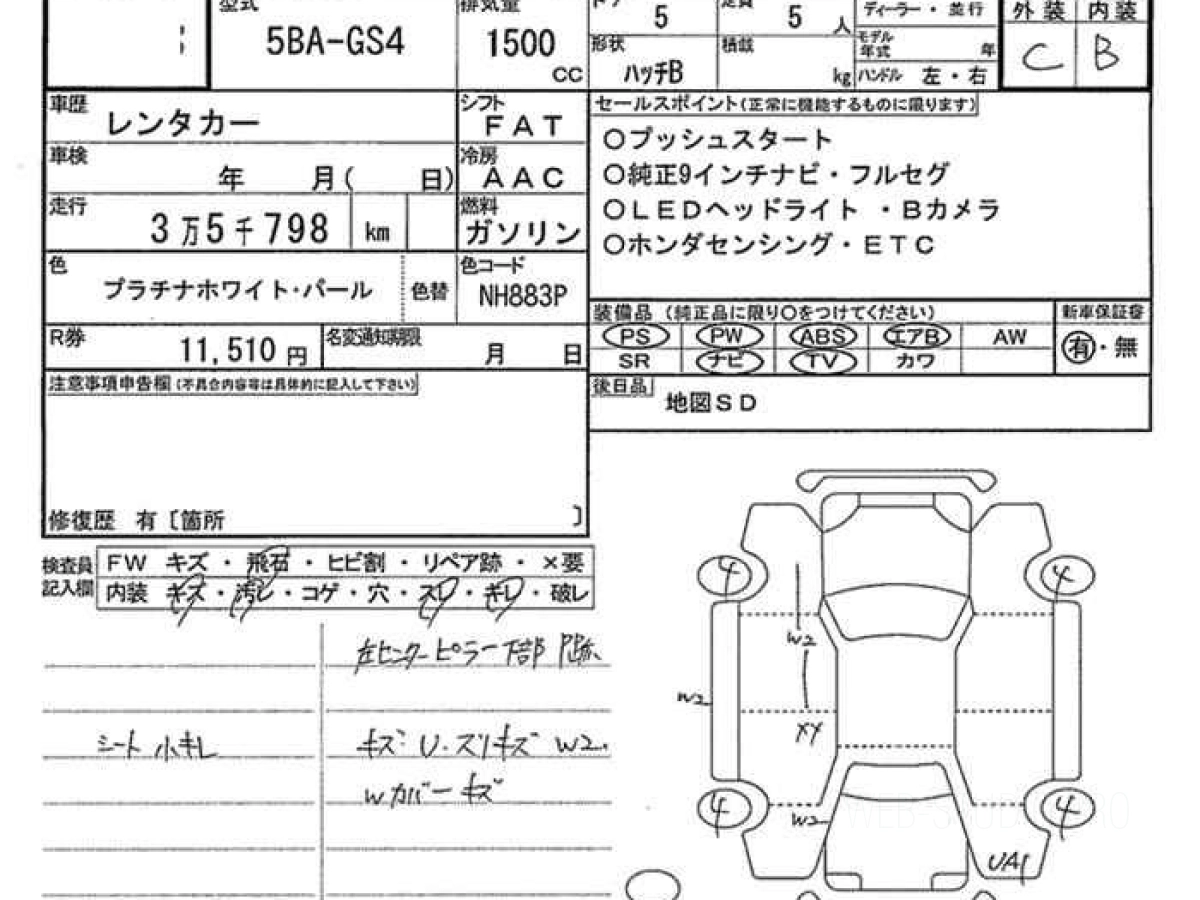 型式 5BA-GS4
排気量 1500 CC
ドア 5
定員 5 人
ディーラー・並行
外装 内装
C B
形状 ハッチB
積載 kg
モデル年式 年
ハンドル 左・右
車歴 レンタカー
シフト FAT
セールスポイント(正常に機能するものに限ります)
○プッシュスタート
車検 年 月( 日)
冷房 AAC
○純正9インチナビ・フルセグ
走行 3万5千798 km
燃料 ガソリン
○LEDヘッドライト ・Bカメラ
○ホンダセンシング・ETC
色 プラチナホワイト・パール 色替
色コード NH883P
装備品 (純正品に限り○をつけてください) 新車保証書
PS PW ABS エアB AW 有・無
SR ナビ TV カワ
R券 11,510 円
名変通知期限 月 日
注意事項申告欄(不具合内容等は具体的に記入して下さい)
後日品 地図SD
修復歴 有〔箇所 〕
検査員記入欄
FW キズ・飛石・ヒビ割・リペア跡・×要
内装 キズ・汚レ・コゲ・穴・スレ・キレ・破レ
左センターピラー下部
シート 小キレ
キズ U・スリキズ W2.
Wカバーキズ
4 4
W2
W2
XY
4 4
W2
UA1